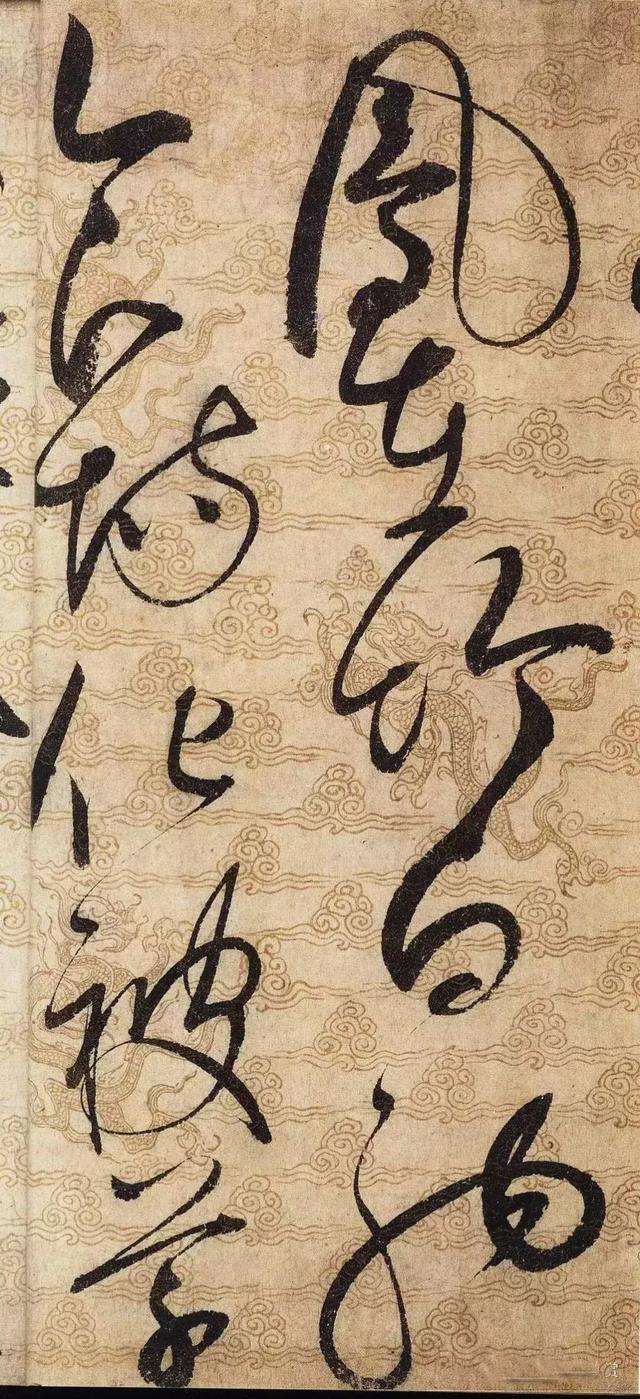 鳳在竹白駒
食場化被草